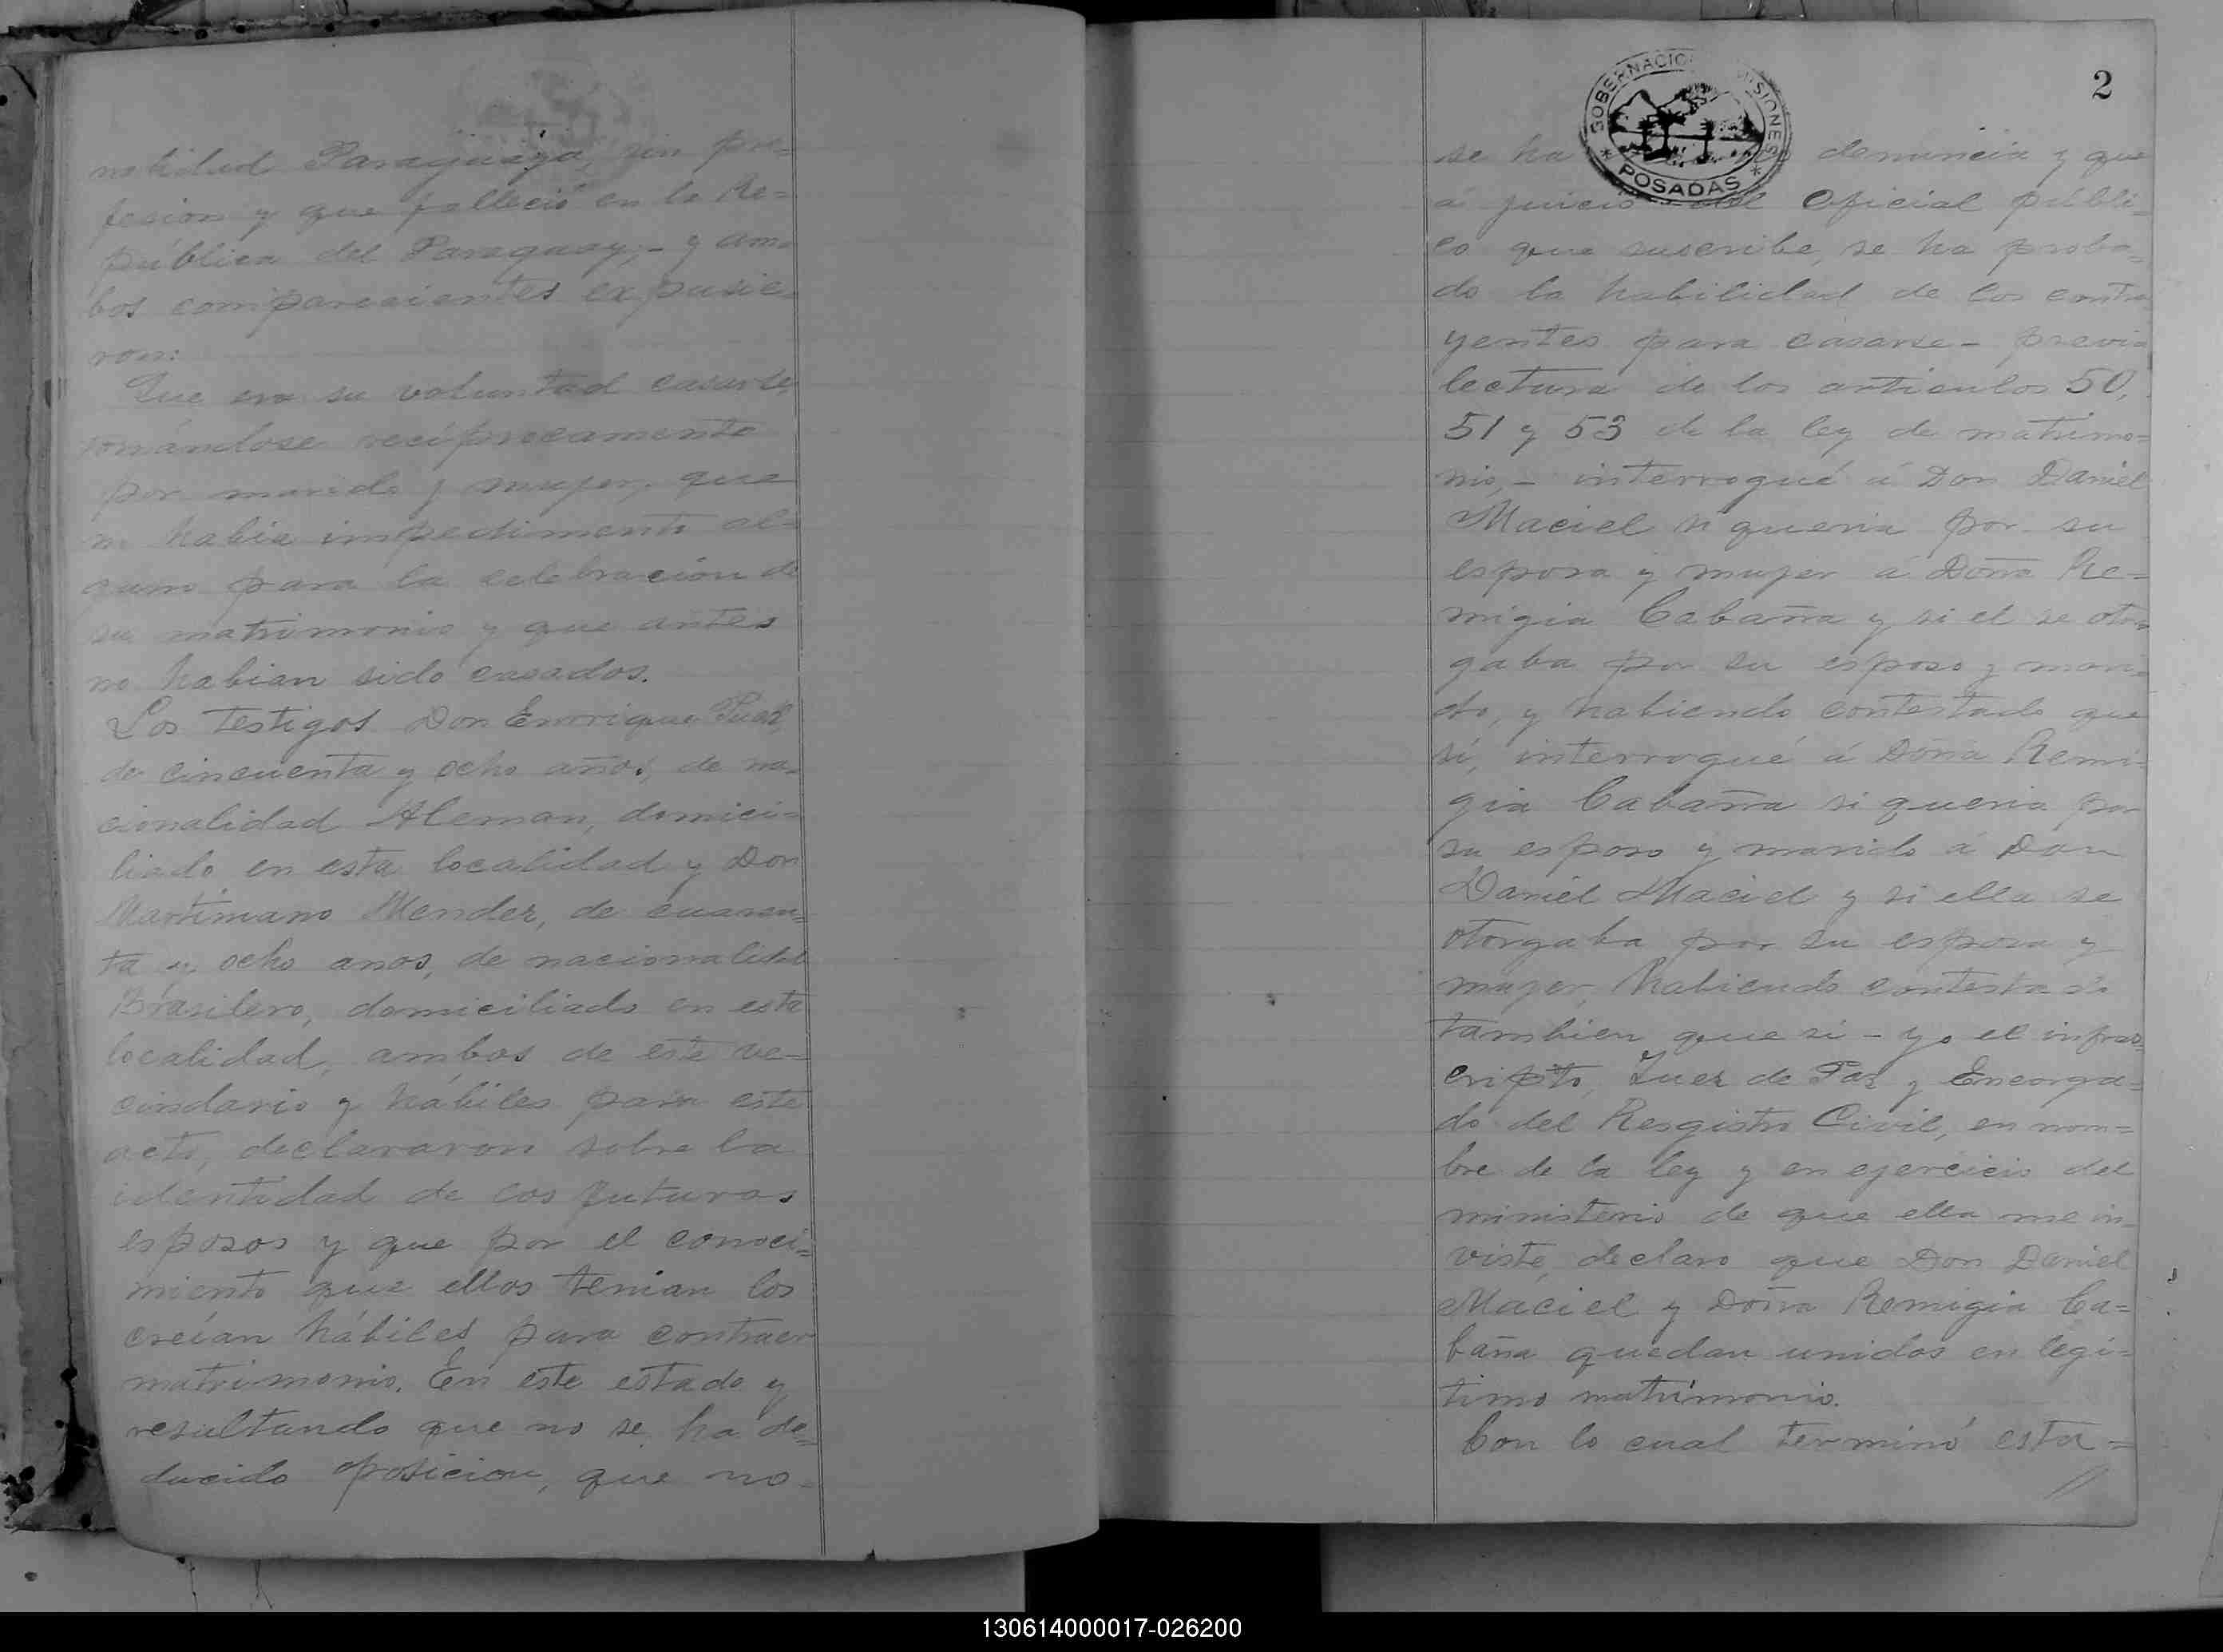 nalidad Paraguaya, sin pro=
fesion y que falleció en la Re=
pública del Paraguay,- y am=
bos comparecientes expusie=
ron:
Que era su voluntad casarse,
tomándose recíprocamente
por marido y mujer, que
no habia impedimento al=
guno para la celebración de
su matrimonio y que antes
no habian sido casados.
Los testigos Don Enrrique
de cincuenta y ocho años, de na=
cionalidad Aleman, domici=
liado en esta localidad y Don
Martimano Mendez, de cuaren=
ta y ocho anos, de nacionalidad
Brasilero, domiciliado en esta
localidad, ambos de este ve=
cindario y hábiles para este
acto, declararon sobre la
identidad de los futuros
esposos y que por el conoci=
miento que ellos tenian los
creían hábiles para contraer
matrimonio. En este estado y
resultando que no se ha de=
ducido oposicion, que no
GOBERNACIO MISIONES
* POSADAS *
2
se ha denuncia y que
á juicio del Oficial públi=
co que suscribe, se ha proba=
do la habilidad de los contra
yentes para casarse- previa
lectura de los articulos 50,
51 y 53 de la ley de matrimo=
nio,- interrogué á Don Daniel
Maciel si queria por su
esposa y mujer á Doña Re=
migia Cabaña y si el se otor=
gaba por su esposo y mari=
do, y habiendo contestado que
sí, interrogué á Doña Remi=
gia Cabaña si queria por
su esposo y marido á Don
Daniel Maciel y si ella se
otorgaba por su esposa y
mujer, habiendo contestado
tambien que si- yo el infras=
cripto, Juez de Paz y Encarga=
do del Resgistro Civil, en nom=
bre de la ley y en ejercicio del
ministerio de que ella me in=
viste, declaro que Don Daniel
Maciel y Doña Remigia Ca=
baña quedan unidos en legi=
timo matrimonio.
Con lo cual terminó esta=
130614000017-026200